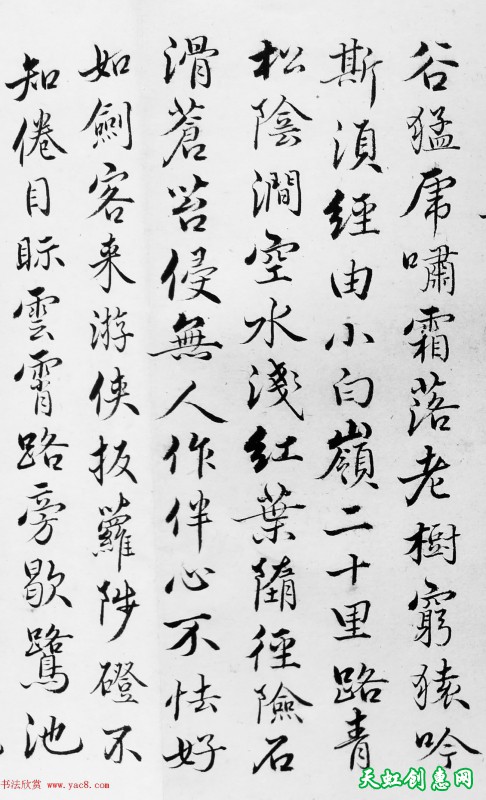 谷猛虎嘯霜落老樹窮猿吟
斯須經由小白嶺二十里路青
松陰澗空水淺紅葉墮徑險石
滑蒼苔侵無人作伴心不怯好
如劍客来游俠扳蘿陟磴不
知倦目眎雲霄路旁歇鷺池
书法欣赏 www.yac8.com
天虹创惠网